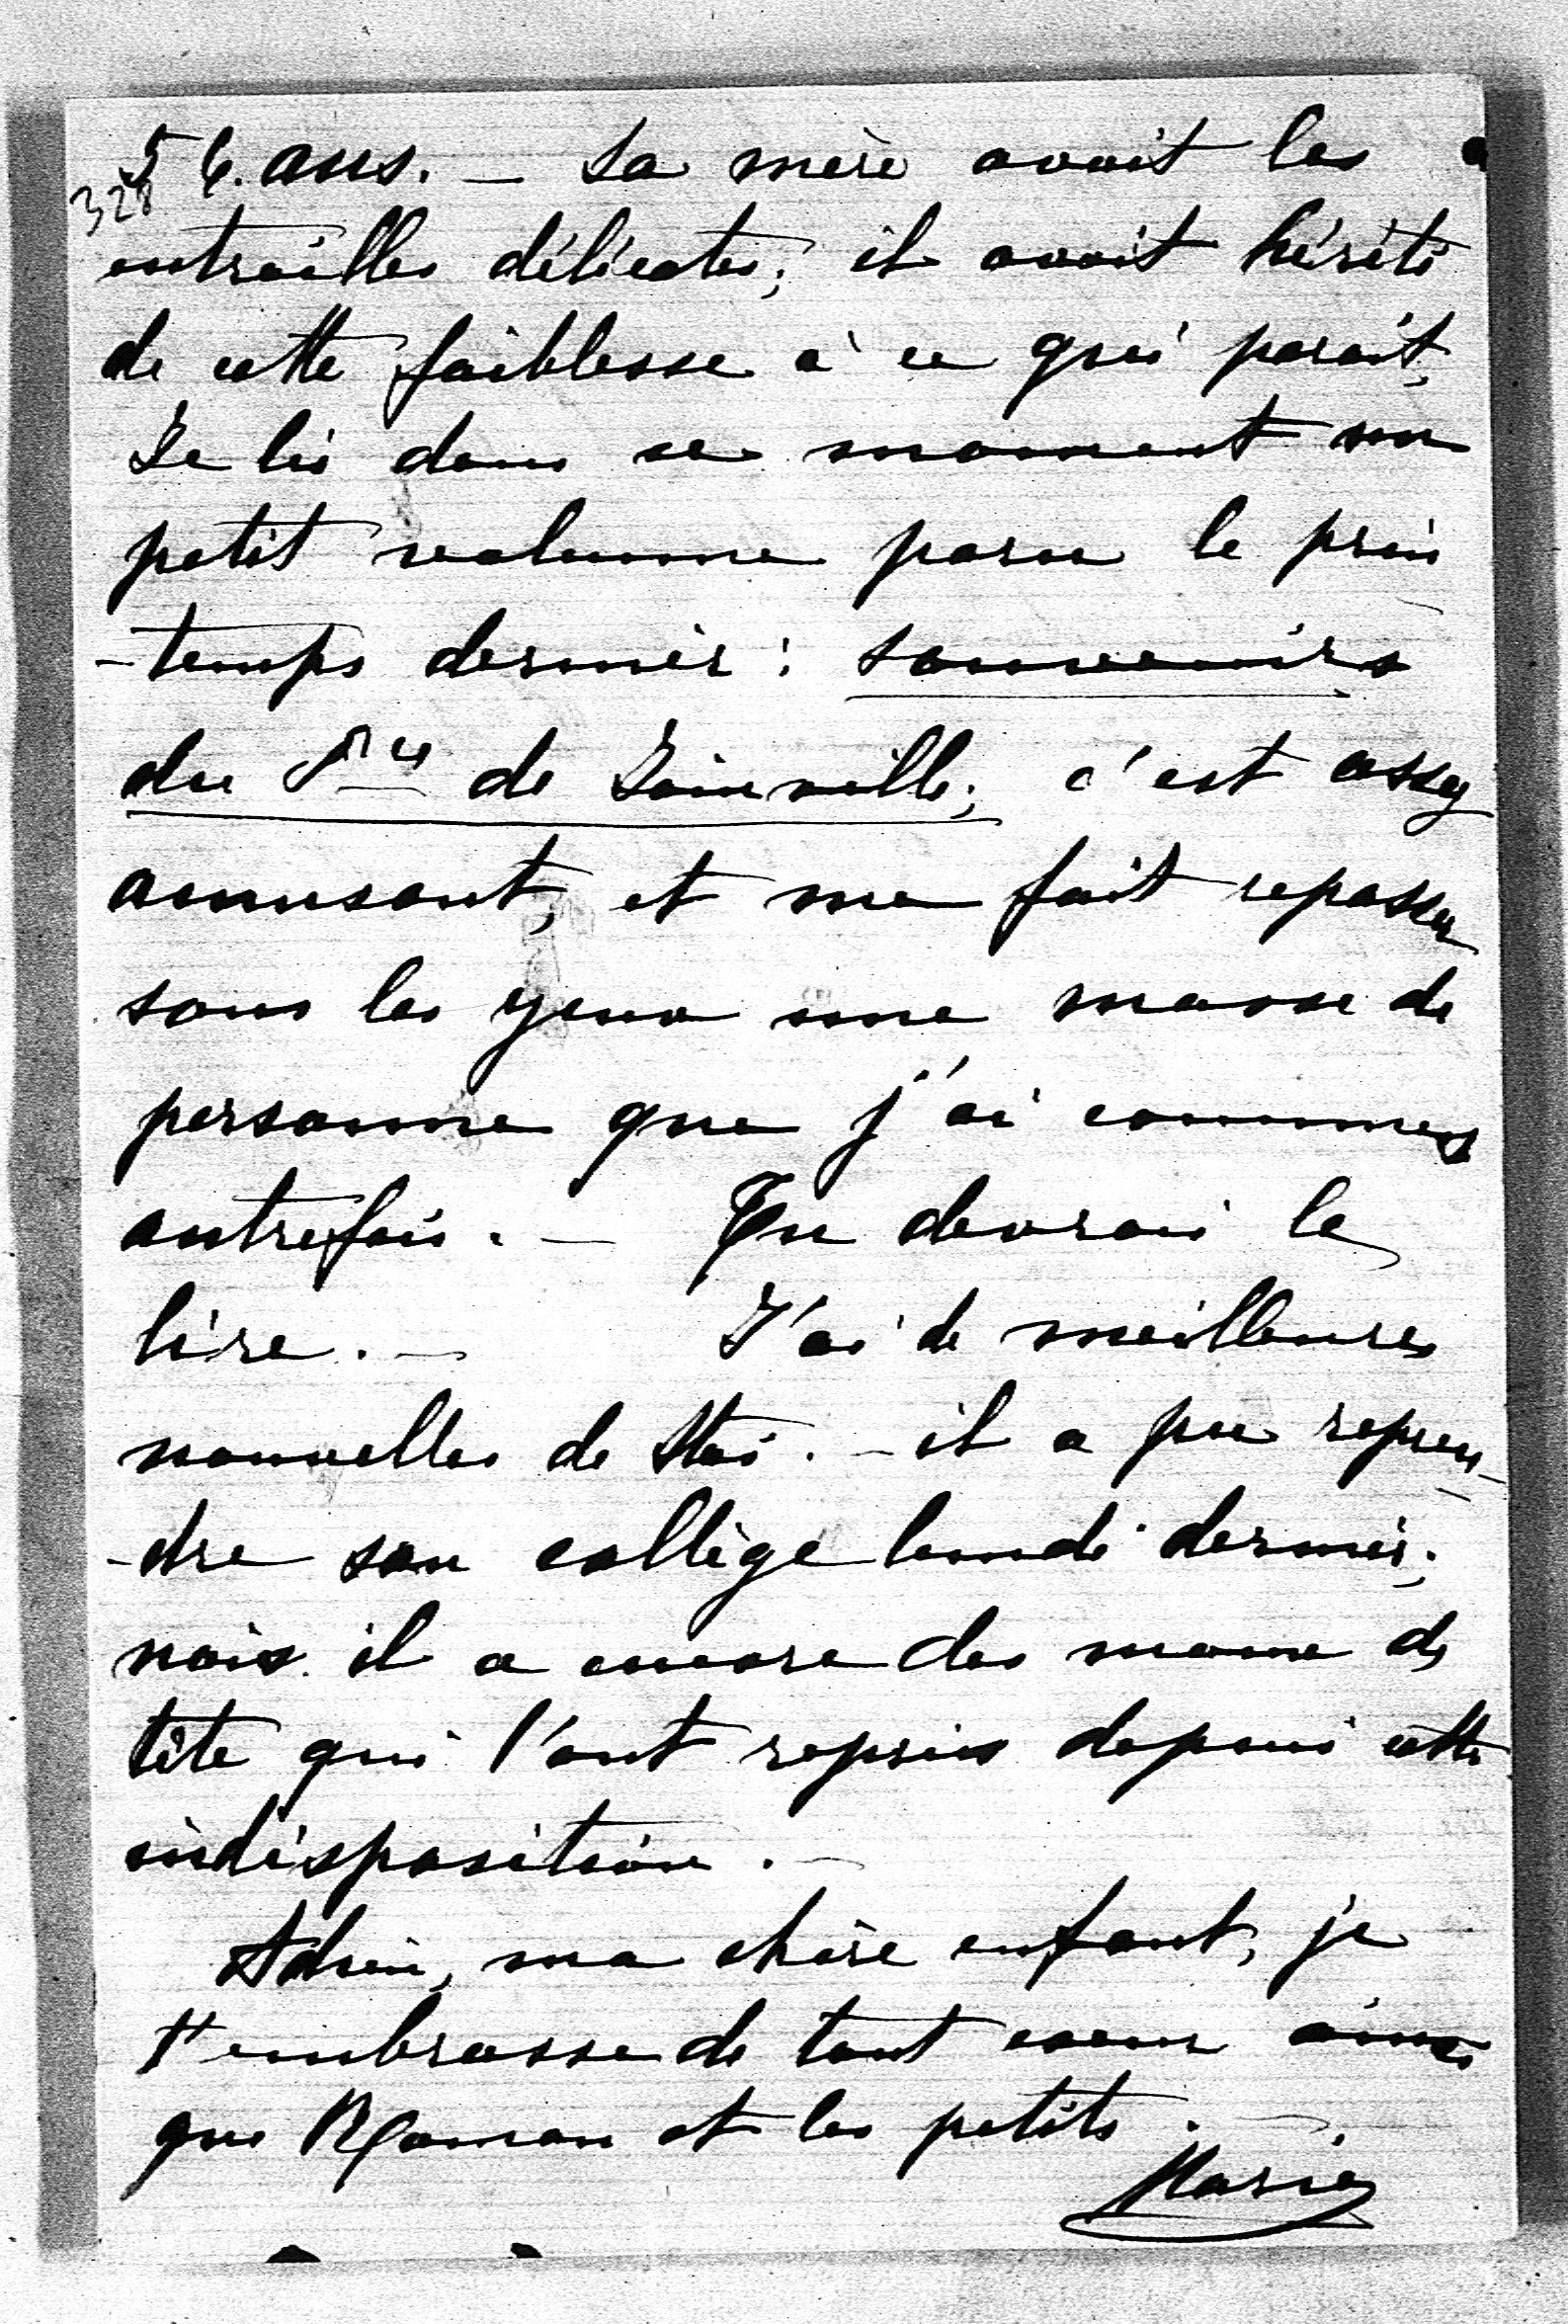 56. ans. — Sa mère avait les
328
entrailles délicates; il avait hérité
de cette faiblesse à ce qui parait.
Je lis dans ce moment un
petit volume paru le prin
-temps dernier : souvenirs
du Pce de Joinville; c'est assez
amusant, et me fait repasser
sous les yeux une masse de
personne que j'ai connues
autrefois. — Tu devrais le
lire. — J'ai de meilleures
nouvelles de Stas. — il a pu repren-
-dre son collège lundi dernier;
mais il a encore des maux de
tête qui l'ont repris depuis cette
indisposition. —
Adieu, ma chère enfant, je
t'embrasse de tout coeur ainsi
que Roman et les petits. —
Marie